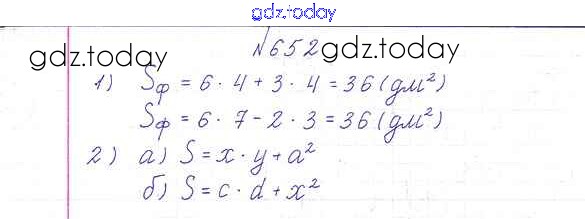 gdz.today
№652
gdz.today gdz.today
1) Sф = 6 · 4 + 3 · 4 = 36 (дм²)
Sф = 6 · 7 - 2 · 3 = 36 (дм²)
2) а) S = x · y + a²
б) S = c · d + x²